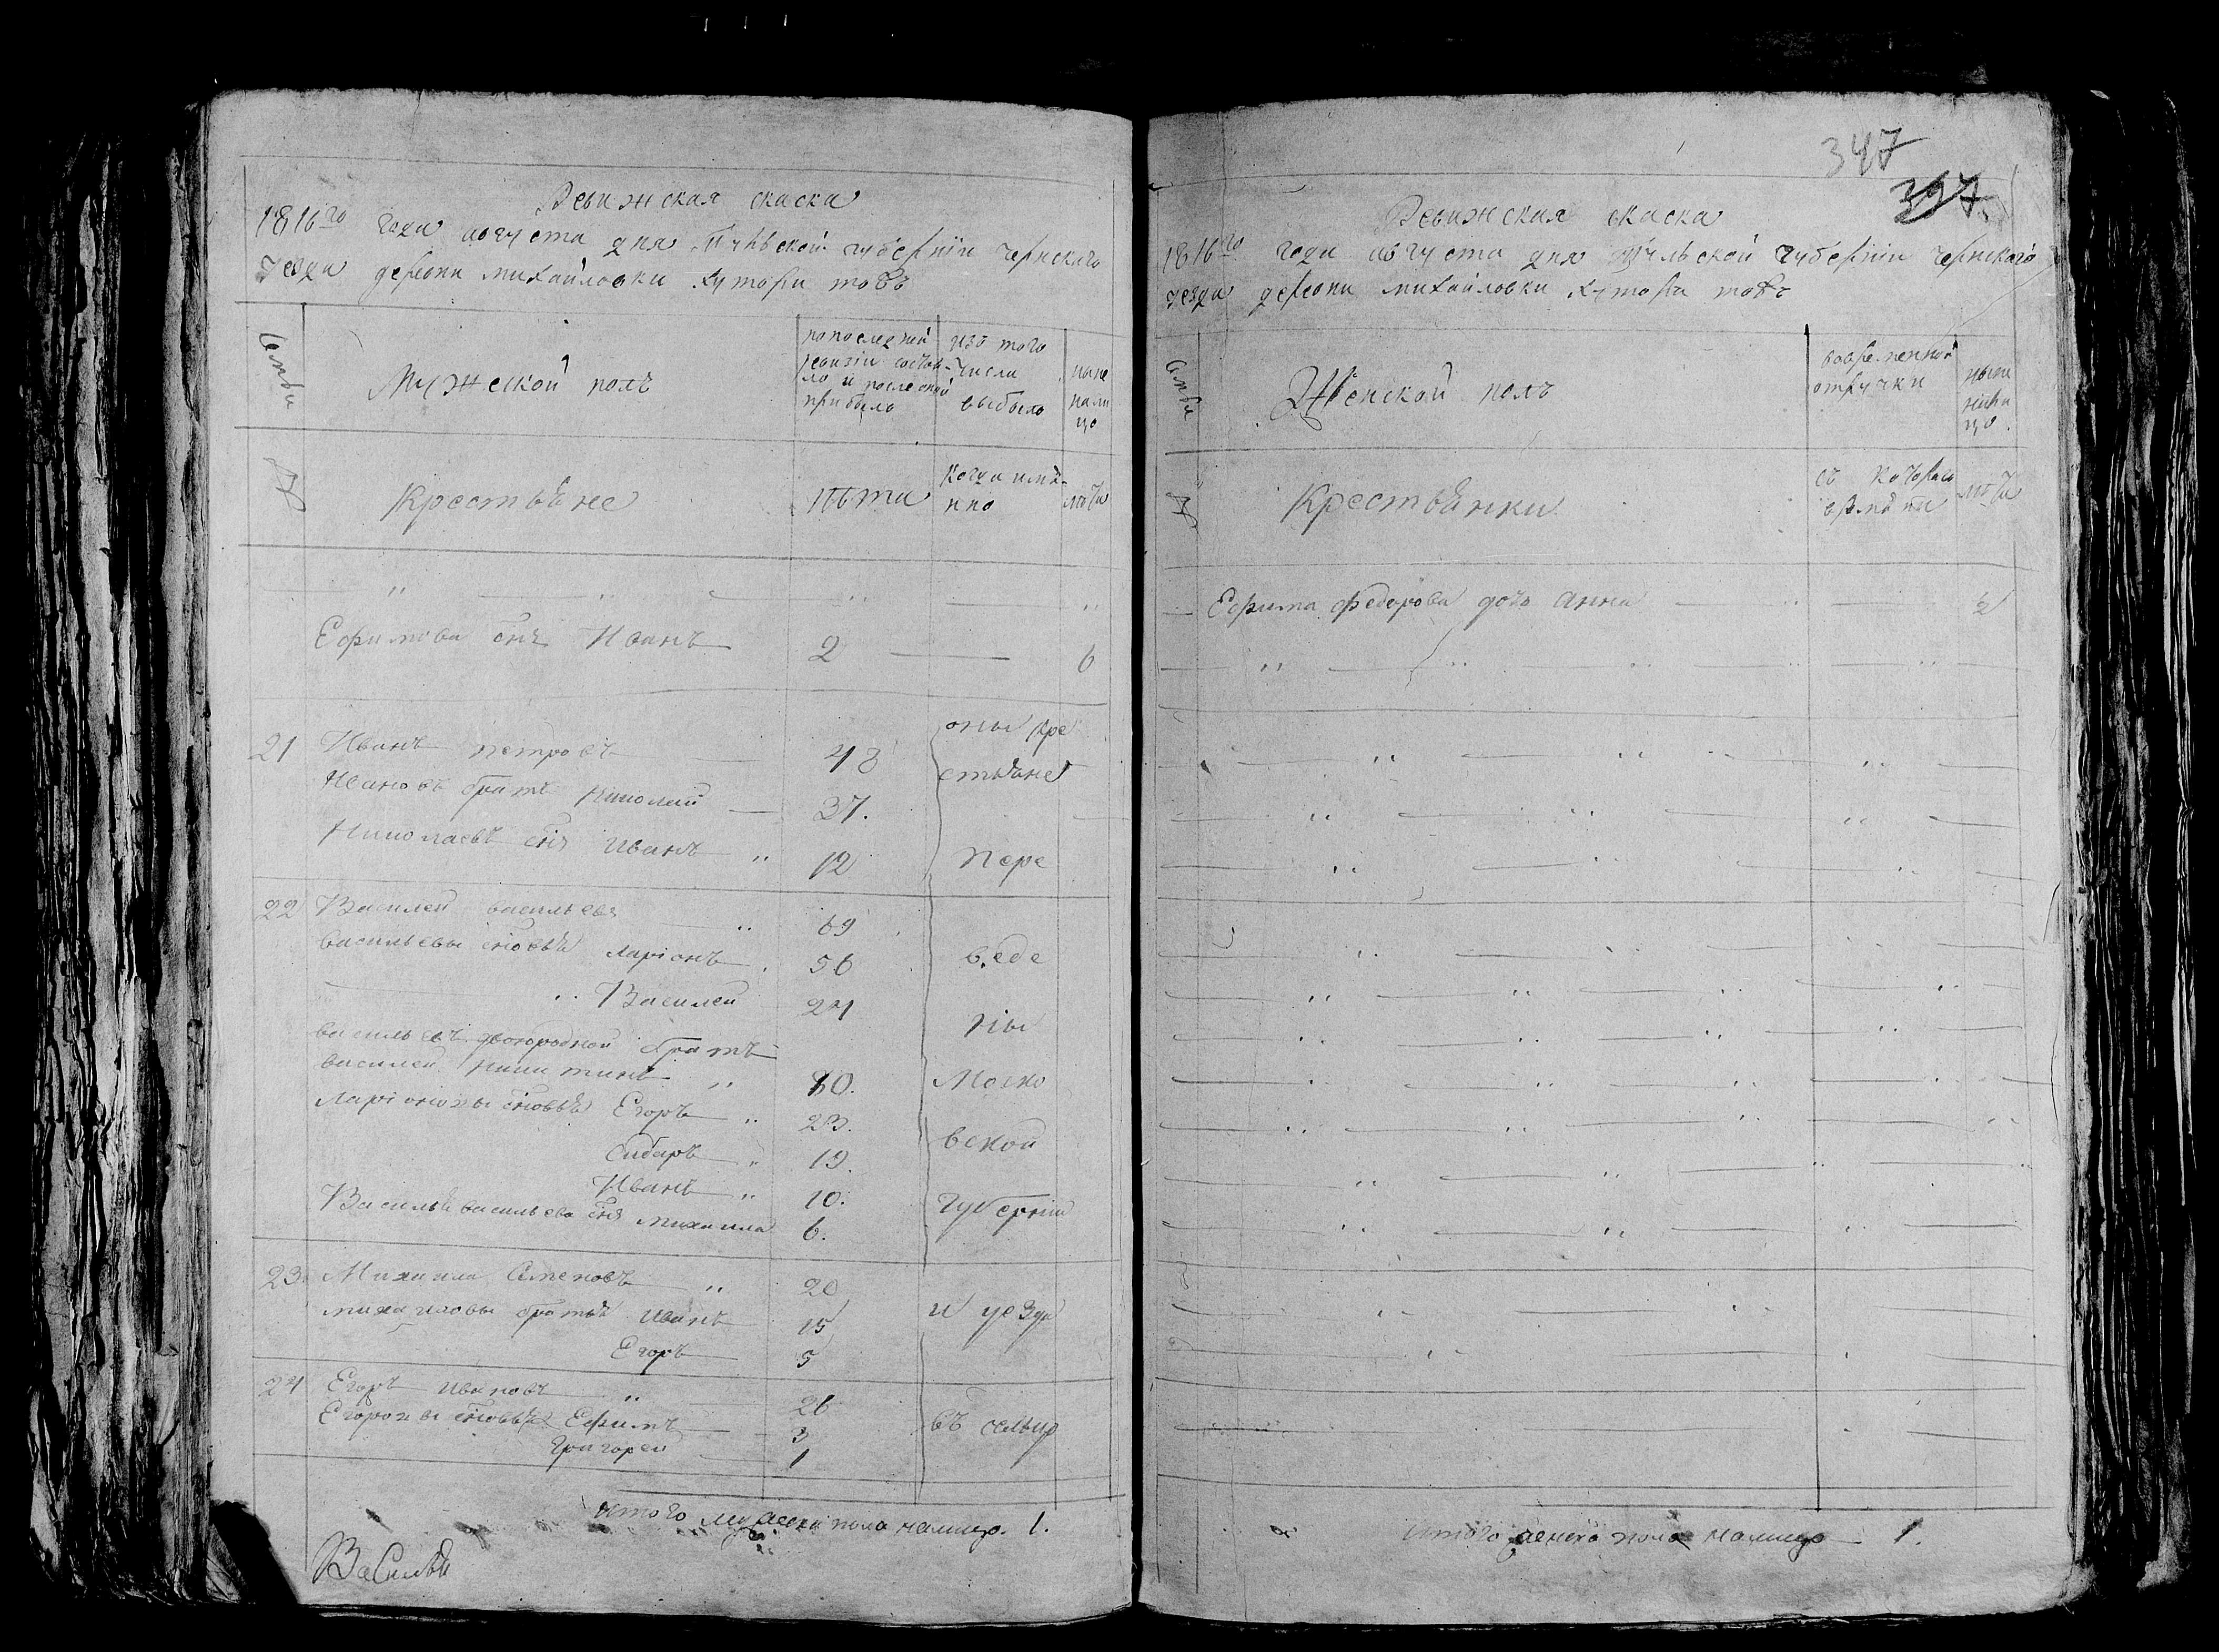 Ревижская скаска
1816го года августа дня Тульской губернiи Чернскаго
уезда деревни михайловки хутора тожъ
Семьи
Мужеской полъ
попоследней
ревизiи состоя-
ло и после оной
прибыло
изъ того
числа
выбыло
ныне
нали
цо
№
Крестьяне
лѣта
когда имя-
нно
лѣта
Ефимова снъ Иванъ 2 6
21 Иванъ петровъ 48
оны кре
Ивановъ братъ Николай 37.
стьяне
Николаевъ снъ Иванъ 12
пере
22 Василей васильевъ 69
васильевы сновья Ларiонъ 56
веде
Василей 24
ны
васильевъ двоюродной братъ
василей никитинъ 80.
Моско
Ларiоновы сновья Егоръ 23.
вской
Сидаръ 19.
Иванъ 10.
губернiи
Василья васильева снъ михаила 6.
23 Михаила Семеновъ 20
михаиловы братья иванъ 15
и уезда
Егоръ 5
24 Егоръ Ивановъ 26
Егоровы сновья Ефимъ 3
въ сельцо
Григорей 1
итого мужеска пола налицо. 1.
Василья
347
397.
Ревижская скаска
1816го года августа дня Тульской губернiи Чернскаго
уезда деревни михайловки хутора тожъ
Семьи
Женской полъ
вовременной
отлучки
ныне
нали
цо.
№
Крестьянки
съ котораго
времяни
лѣта
Ефима федорова дочь анна 2
итого женска пола налицо 1.